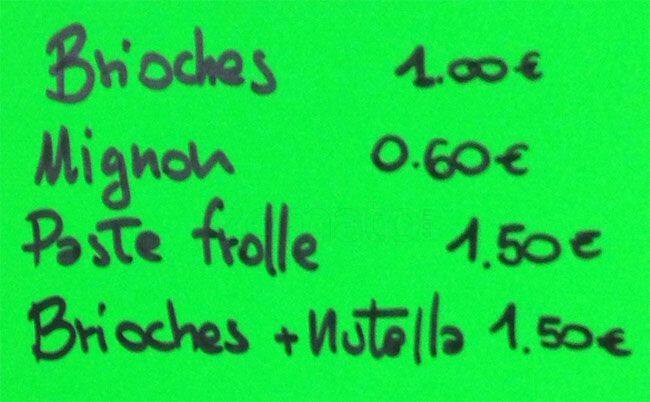 Brioches 1.00€
Mignon 0.60€
Paste frolle 1.50€
Brioches + Nutella 1.50€